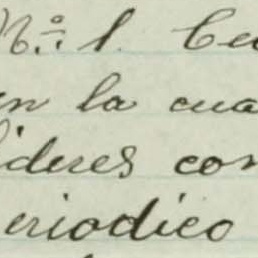 Nº 1. Ce
en la cua
lideres con
eriodico